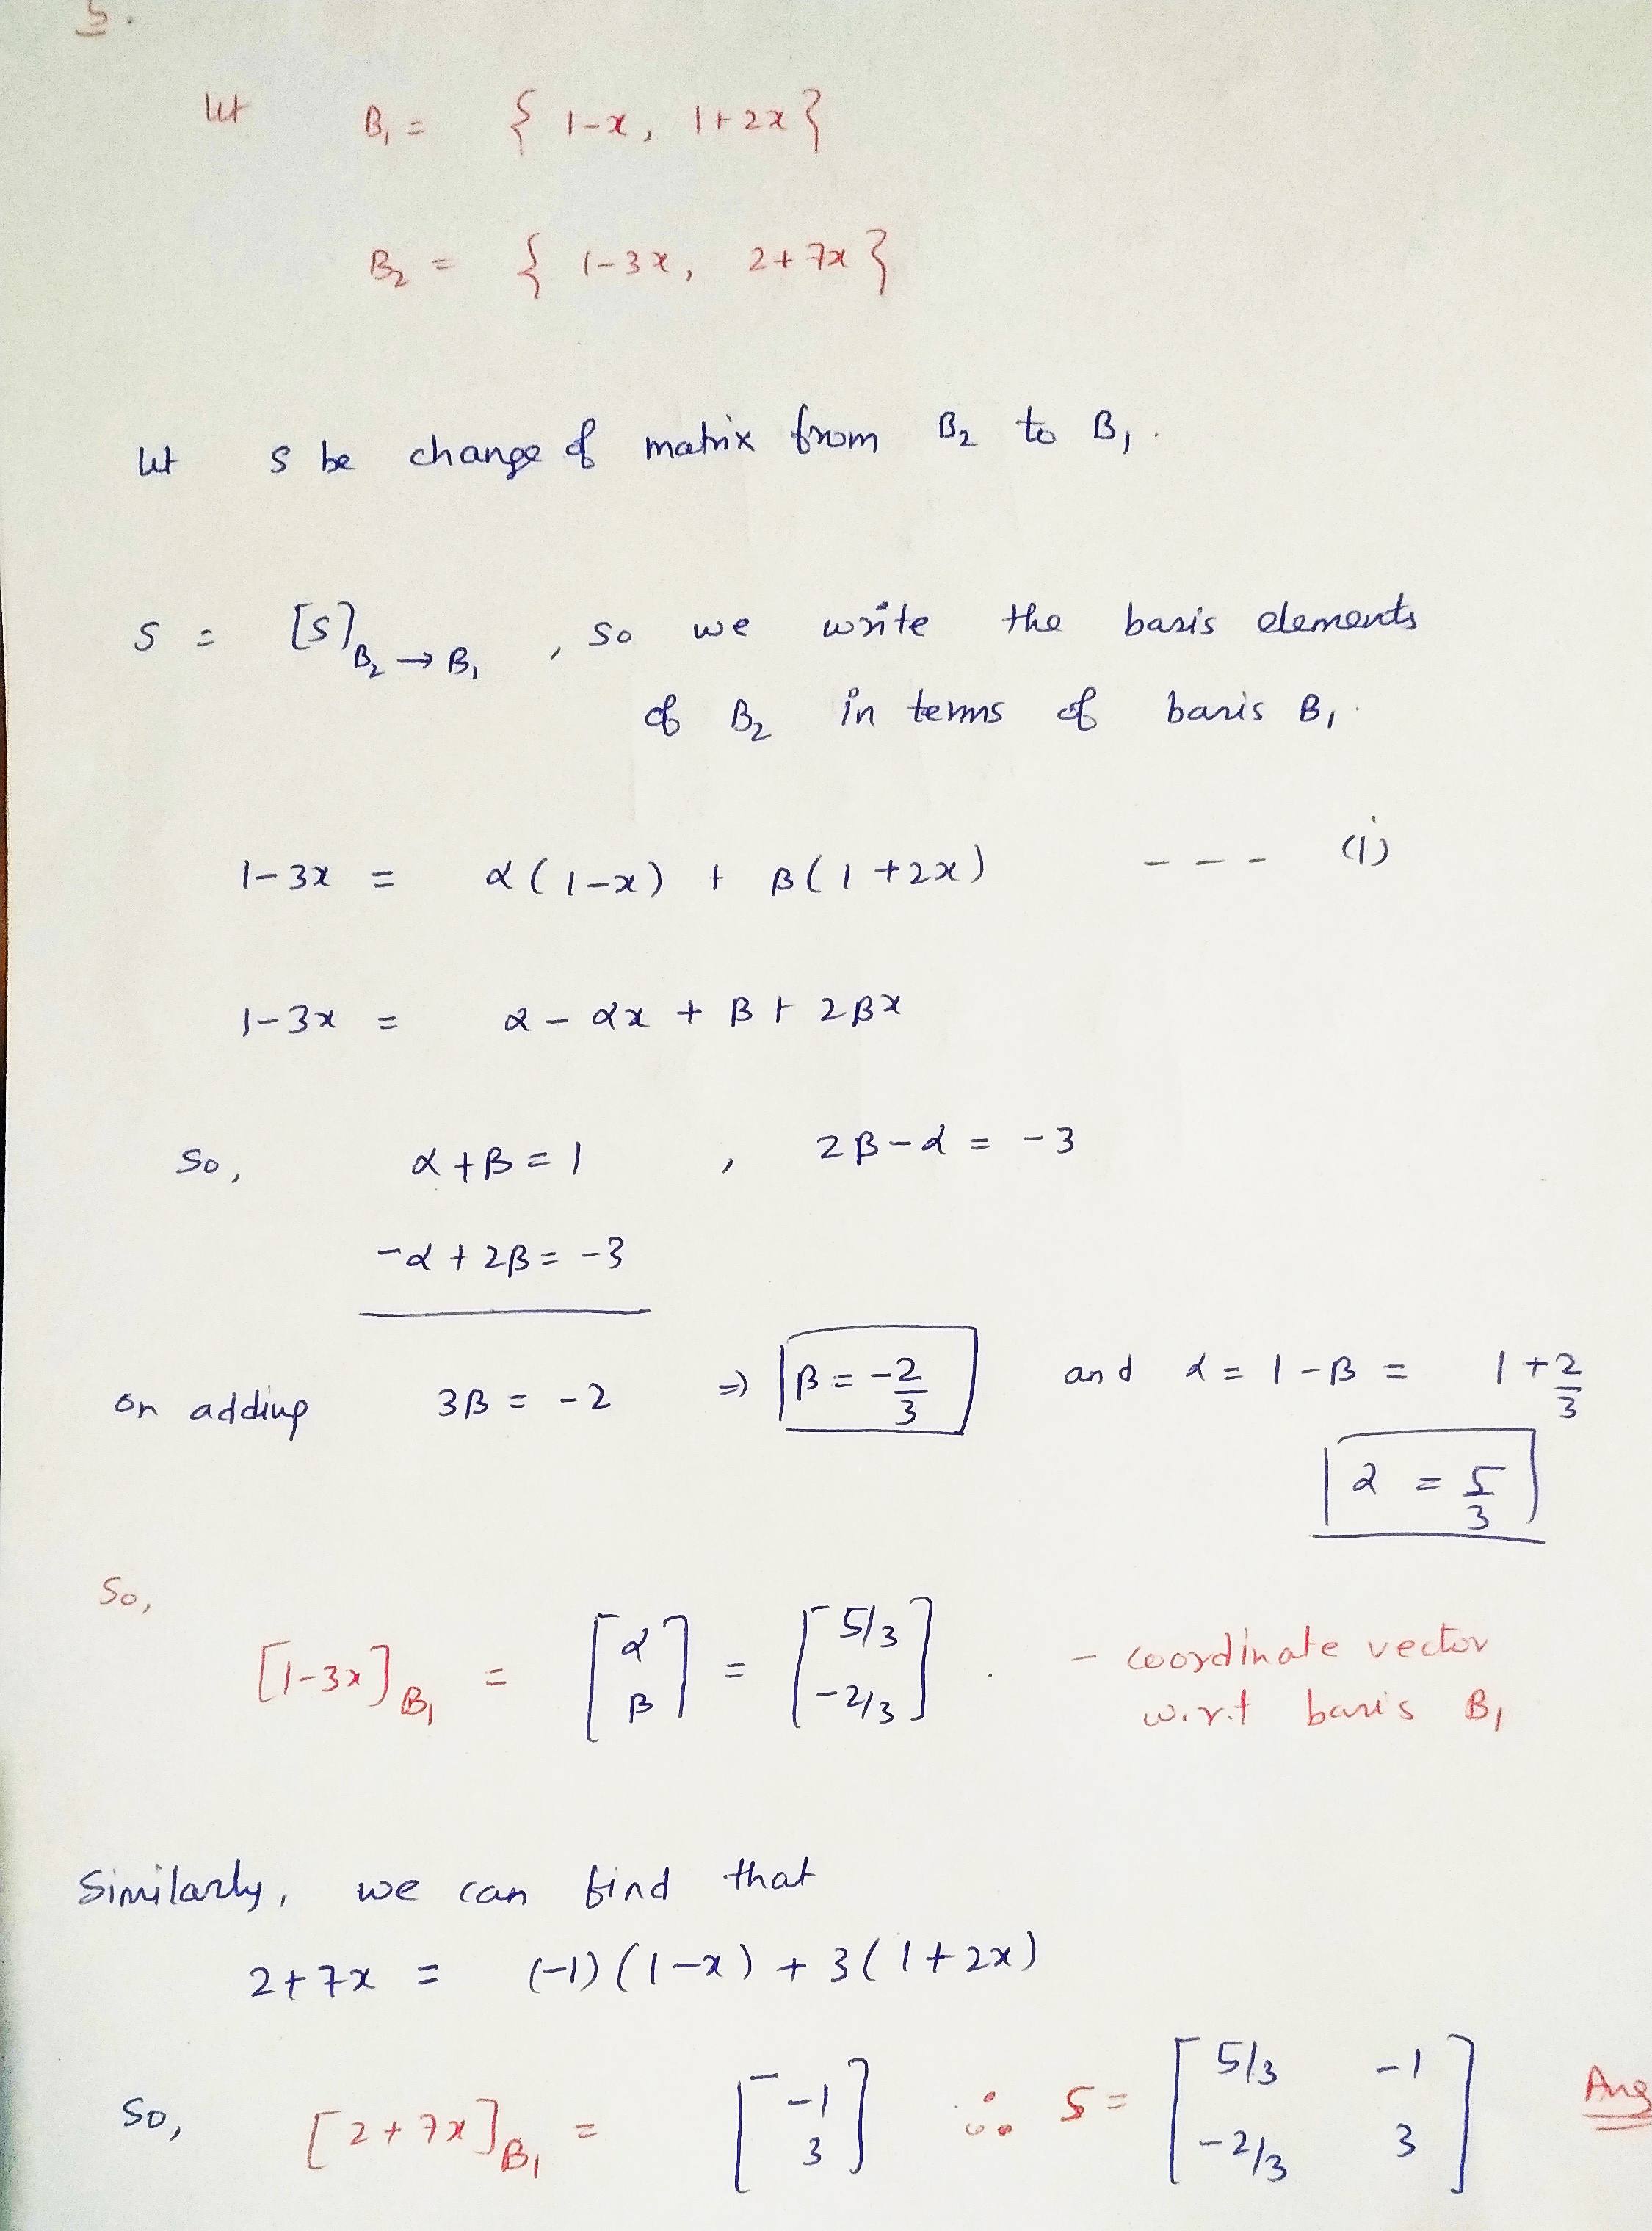 5.
let B₁ = { 1-x, 1+2x }
B₂ = { 1-3x, 2+7x }
let S be change of matrix from B₂ to B₁.
S = [S]B₂→B₁ , so we write the basis elements
of B₂ in terms of basis B₁.
1-3x = α(1-x) + β(1+2x) --- (i)
1-3x = α - αx + β + 2βx
So, α+β=1 , 2β-α = -3
-α+2β= -3
on adding 3β = -2 ⇒ β = -2/3 and α = 1-β = 1+2/3
α = 5/3
So,
[1-3x]B₁ = [α β] = [5/3 -2/3]. - coordinate vector
w.r.t basis B₁
Similarly, we can find that
2+7x = (-1)(1-x) + 3(1+2x)
So, [2+7x]B₁ = [-1 3] ∴ S = [5/3 -1 -2/3 3] Ans